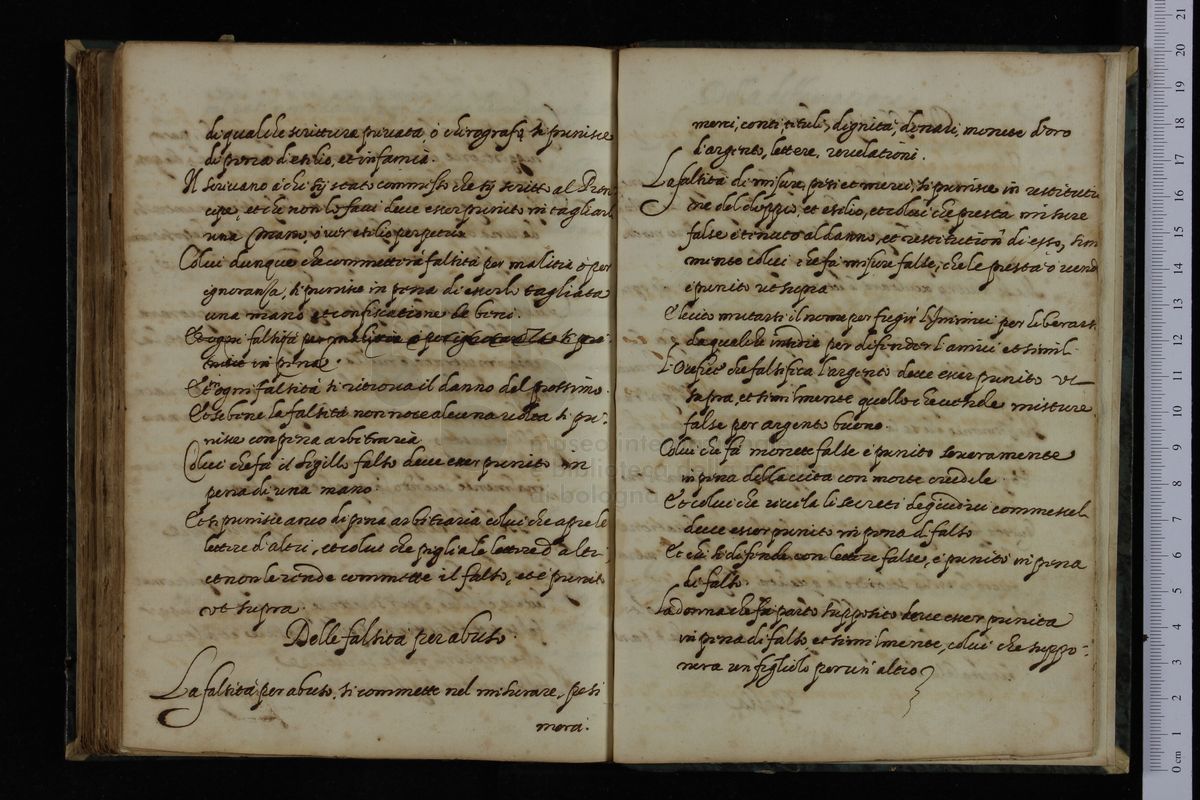 di qualche scrittura privata ò chirografo si punisce
di pena d'esilio, et infamia.
Il scrivano à chi sij stato commesso che sij scritto al Pren
cipe, et che non lo facci deve esser punito in tagliarli
una mano, ò ver esilio perpetuo
Colui dunque che commetterà falsità per malitia ò per
ignoranza, si punisce in pena di esserli tagliata
una mano et confiscatione de beni.
Et ogni falsità per malitia o per ignoranza si
in pena
Et in ogni falsità si ritrova il danno del prossimo.
Et se bene la falsità non noce alcuna volta si pu-
nisce con pena arbitraria
Colui che fà il sigillo falso deve esser punito in
pena di una mano.
Et si punisce anco di pena arbitraria colui che apre le
lettere d'altri, et colui che piglia le lettere d'altri
et non le rende commette il falso, et è punito
ut supra.
Delle falsità per abuso.
La falsità per abuso, si commette nel misurare, pesi
merci.
merci, conti, tituli, dignità, denari, monete d'oro
d'argento, lettere, revelationi.
La falsità di misure, pesi et merci, si punisce in restituti
one del doppio, et esilio, et colui che presta misure
false è tenuto al danno, et restitution di esso, sim
mente colui che fà misure false, che le presta ò vend
è punito ut supra
È lecito mutarsi il nome per fugir l'inimici per liberarsi
da qualche insidie per difender l'amici et simil.
L'orefice che falsifica l'argento deve esser punito ut
supra, et similmente quello che vende misture
false per argento buono.
Colui che fà monete false è punito severamente
in pena della vita con morte crudele.
Et colui che rivela li secreti de giuditii commessel
deve esser punito in pena di falso
Et chi si difende con lettere false, è punito in pena
di falso.
La donna che fà parto supposito deve esser punita
in pena di falso, et similmente, colui che suppo-
nera un figliolo per un' altro
museo internazionale
e biblioteca della
di bologna
0 cm 1 2 3 4 5 6 7 8 9 10 11 12 13 14 15 16 17 18 19 20 21